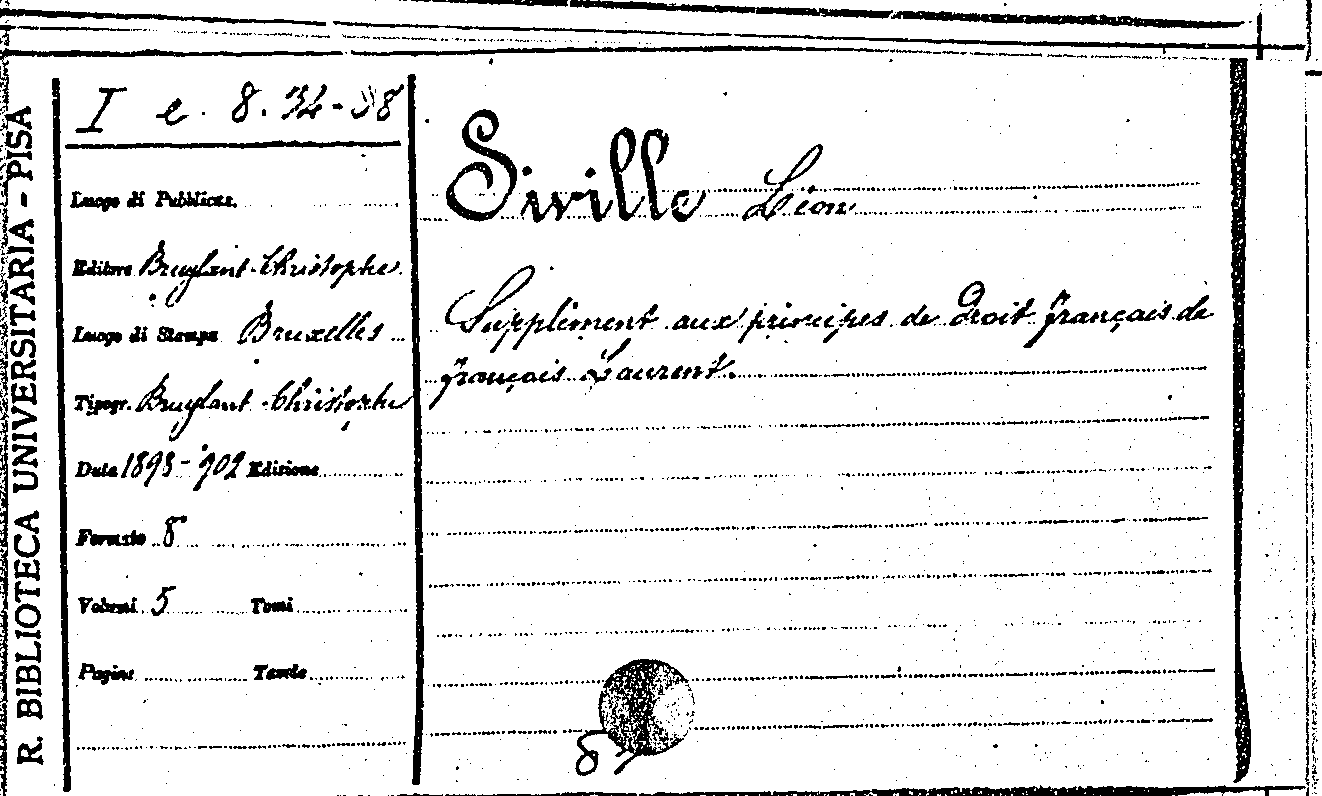 R. BIBLIOTECA UNIVERSITARIA - PISA
I e. 8. 34-38
Siville Léon
Luogo di Pubblicaz.
Editore Bruylant-Christophe
Luogo di Stampa Bruxelles
Tipogr. Bruylant-Christophe
Data 1898-'902 Edizione
Formato 8
Volumi 5 Tomi
Pagine Tavole
Supplément aux principes de Droit français de
français Laurent.